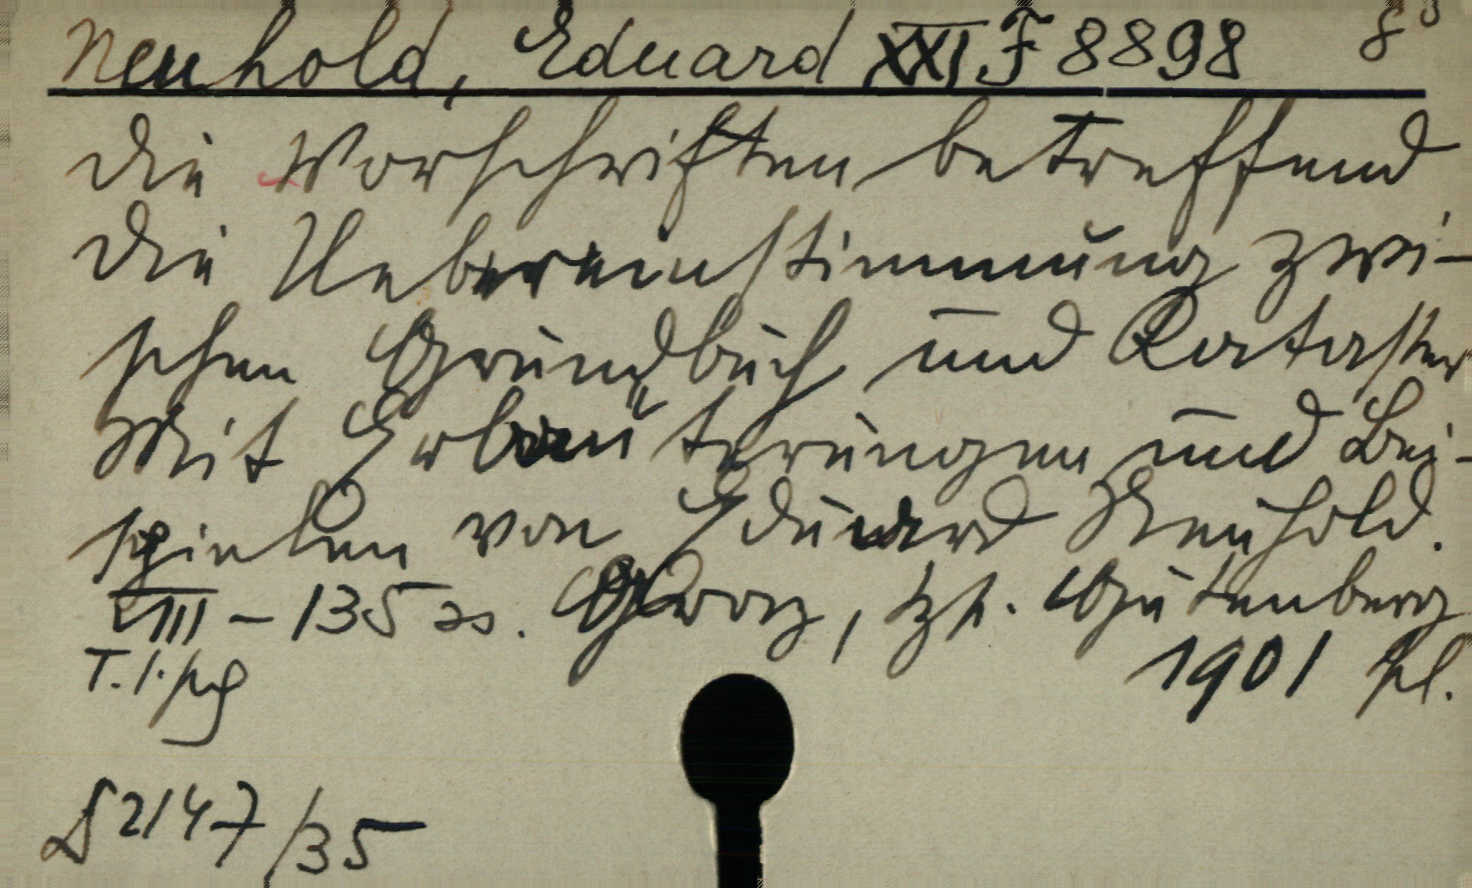 Neuhold, Eduard XXI F 8898 8°
Die Vorschriften betreffend
die Uebereinstimmung zwi-
schen Grundbuch und Kataster
Mit Erläuterungen und Bei-
spielen von Eduard Neuhold.
VIII - 135 ss. Graz, Gutenberg
1901
2147/35